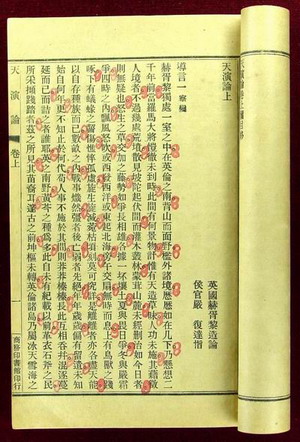 天演論上
英國赫胥黎造論
侯官嚴　復達恉
導言一　察變
赫胥黎獨處一室之中在英倫之南背山而面野檻外諸境歷歷如在几下乃懸想二
千年前當羅馬大將愷徹未到時此間有何景物計惟有天造草昧人功未施其藉徵
人境者不過幾處荒墳散見坡陀起伏間而灌木叢林蒙茸山麓未經刪治如今日者
則無疑也怒生之草交加之藤勢如爭長相雄各據一抔壤土夏與畏日爭冬與嚴霜
爭四時之內飄風怒吹或西發西洋或東起北海旁午交扇無時而息上有鳥獸之踐
啄下有蟻蝝之齧傷憔悴孤虛旋生旋滅菀枯頃刻莫可究詳是離離者亦各盡天能
以自存種族而已數畝之內戰事熾然強者後亡弱者先絕年年歲歲偏有留遺未知
始自何年更不知止於何代苟人事不施於其間則莽莽榛榛長此互相吞併混逐蔓
延而已而詰之者誰耶英之南野黃芩之種為多此自未有紀載以前革衣石斧之民
所采擷踐踏者茲之所見其苗裔耳邃古之前坤樞未轉英倫諸島乃屬冰天雪海之
天演論　卷上　商務印書館印行